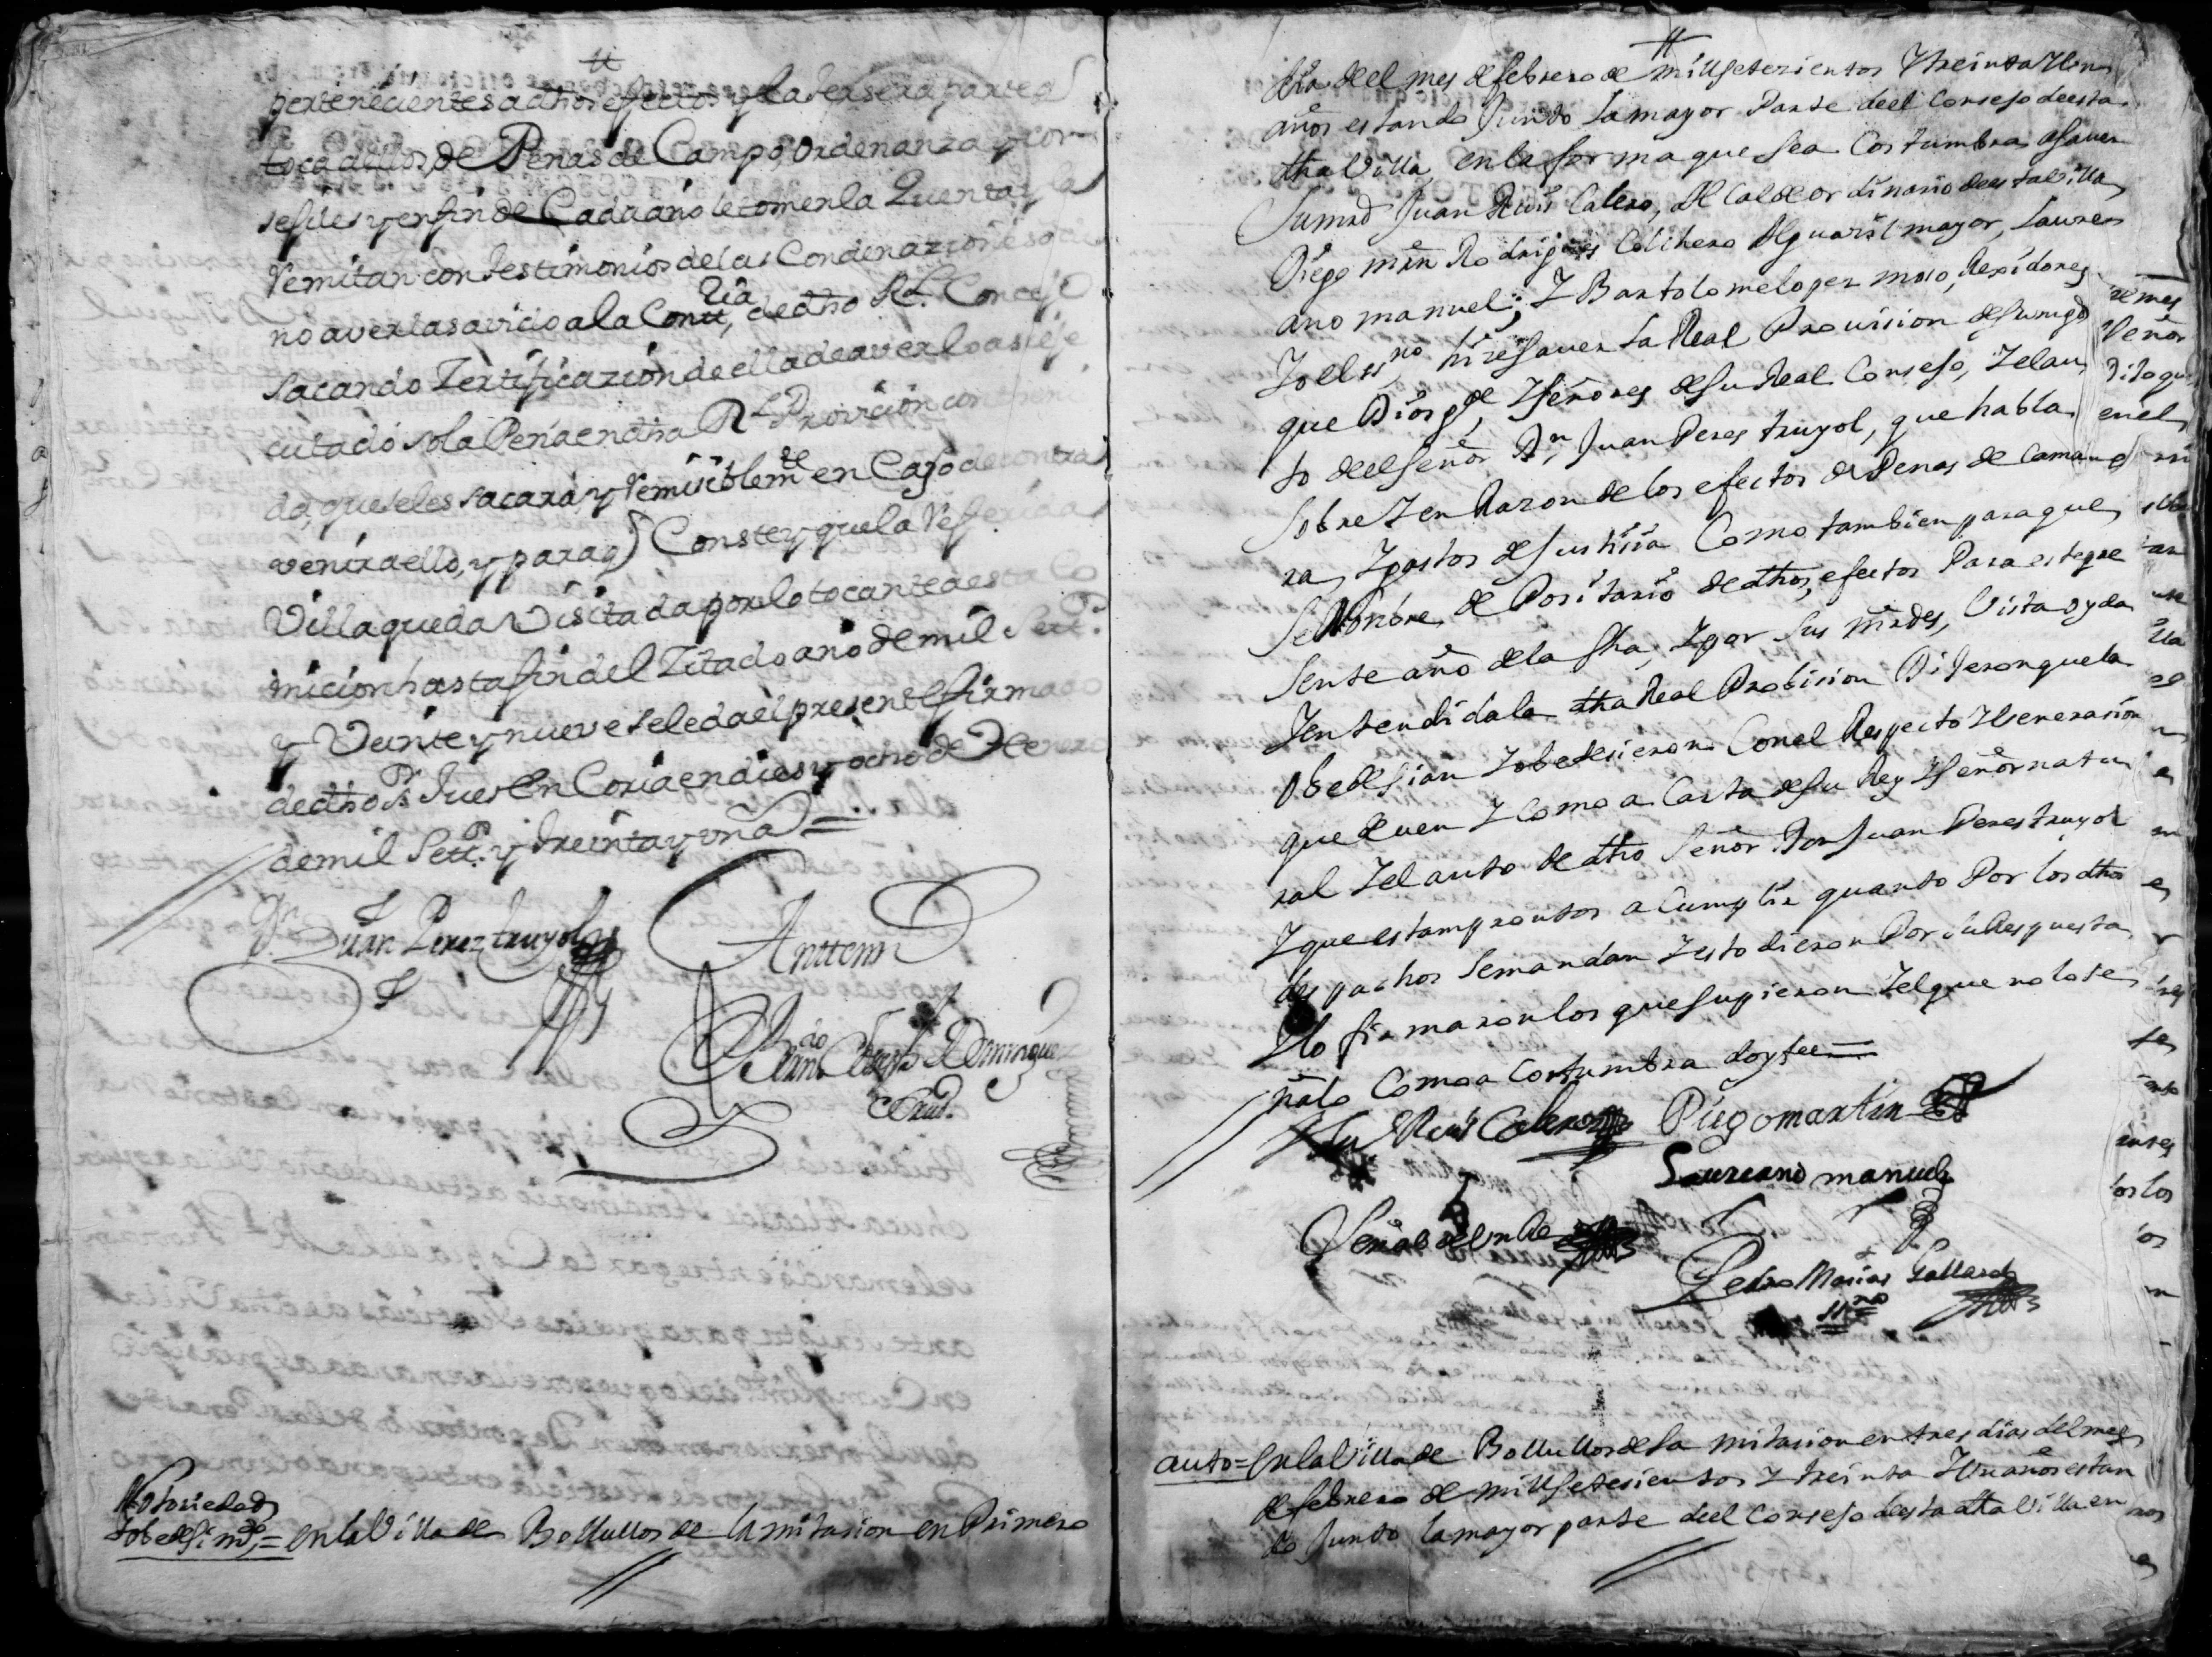 pertenecientes a dhos efectos y la tersera parte q̃
toca a ellos, de Penas de Campo, ordenanza y con
sefiles y en fin de Cada año le tomen la Quenta, y la
Remitan con testimonios de las Condenaziones o de
no averlas avido a la Conturia, de dho Rl. Concejo
sacando Zertificazion de ella de averlo asi eje
cutado so la Pena en dha Rl Provicion conthení
da, que se les sacará, y Remisiblemte en Caso de contra
venir a ello, y para q̃ Conste y que la Referida
Villa queda Visitada por lo tocante a esta Co
micion hasta fin del Zitado año de mil Sett.s
y Veinte y nueve se le da el presente firmado
de dho Sr Jues En Coria en dies y ocho de Henero
de mil Sett.s y treinta y vno =
Dn Juan Perez truyol
Anttemi
Domingue
Notoriedad
Yobedesimto = en la Villa de Bollullos de la mitasion en Primero
dia de el mes de febrero de mill seteсientos Y treinta Y Un
años estando Junto La mayor Parte de el Consejo de esta
dha Villa, en la forma que sea Costumbra asauer
Su md Juan Ruis Calero, Alcalde ordinario de esta Villa
Diego mrn Rodrigues Colchero Alguasil mayor, Laure
ano manuel; Y Bartolome lopez moro, Rexidores
Yo el esno hise sauer La Real Prouision de su mgd
que Dios gde, Y señores de su Real Consejo, Y el au
to de el señor Dn, Juan Peres truyol, que habla
sobre Y en Razon de los efectos de Penas de Cama
ra, Y gastos de Justisia Como tambien para que
se Nonbre, de Positario de dhos, efectos Para este pre
sente año de la fha, Y por sus mrdes, Vista oyda
Y entendida la dha Real Probision Dijeron que la
obedesian Y obedesieron Con el Respecto Y Uenerasion
que deuen Y Como a Carta de su Rey Y señor natu
ral Y el auto de dho Señor Don Juan Peres truyol
Y que estan prontos a Cumplir quanto Por los dhos
despachos se mandan Y esto dieron Por su Respuesta
Y lo firmaron los que supieron Y el que no lo se
ñalo Como a Costumbra doy fee =
Ju Ruis Calero
Diego martin
Laureano manuel
Señal de Un Re
Pedro Masias Gallardo
ssno
auto = En la Villa de Bollullos de la mitasion en tres dias del mes
de febrero de mill setesientos Y treinta Y Un años estan
do Junto la mayor parte de el Consejo de esta dha Villa en